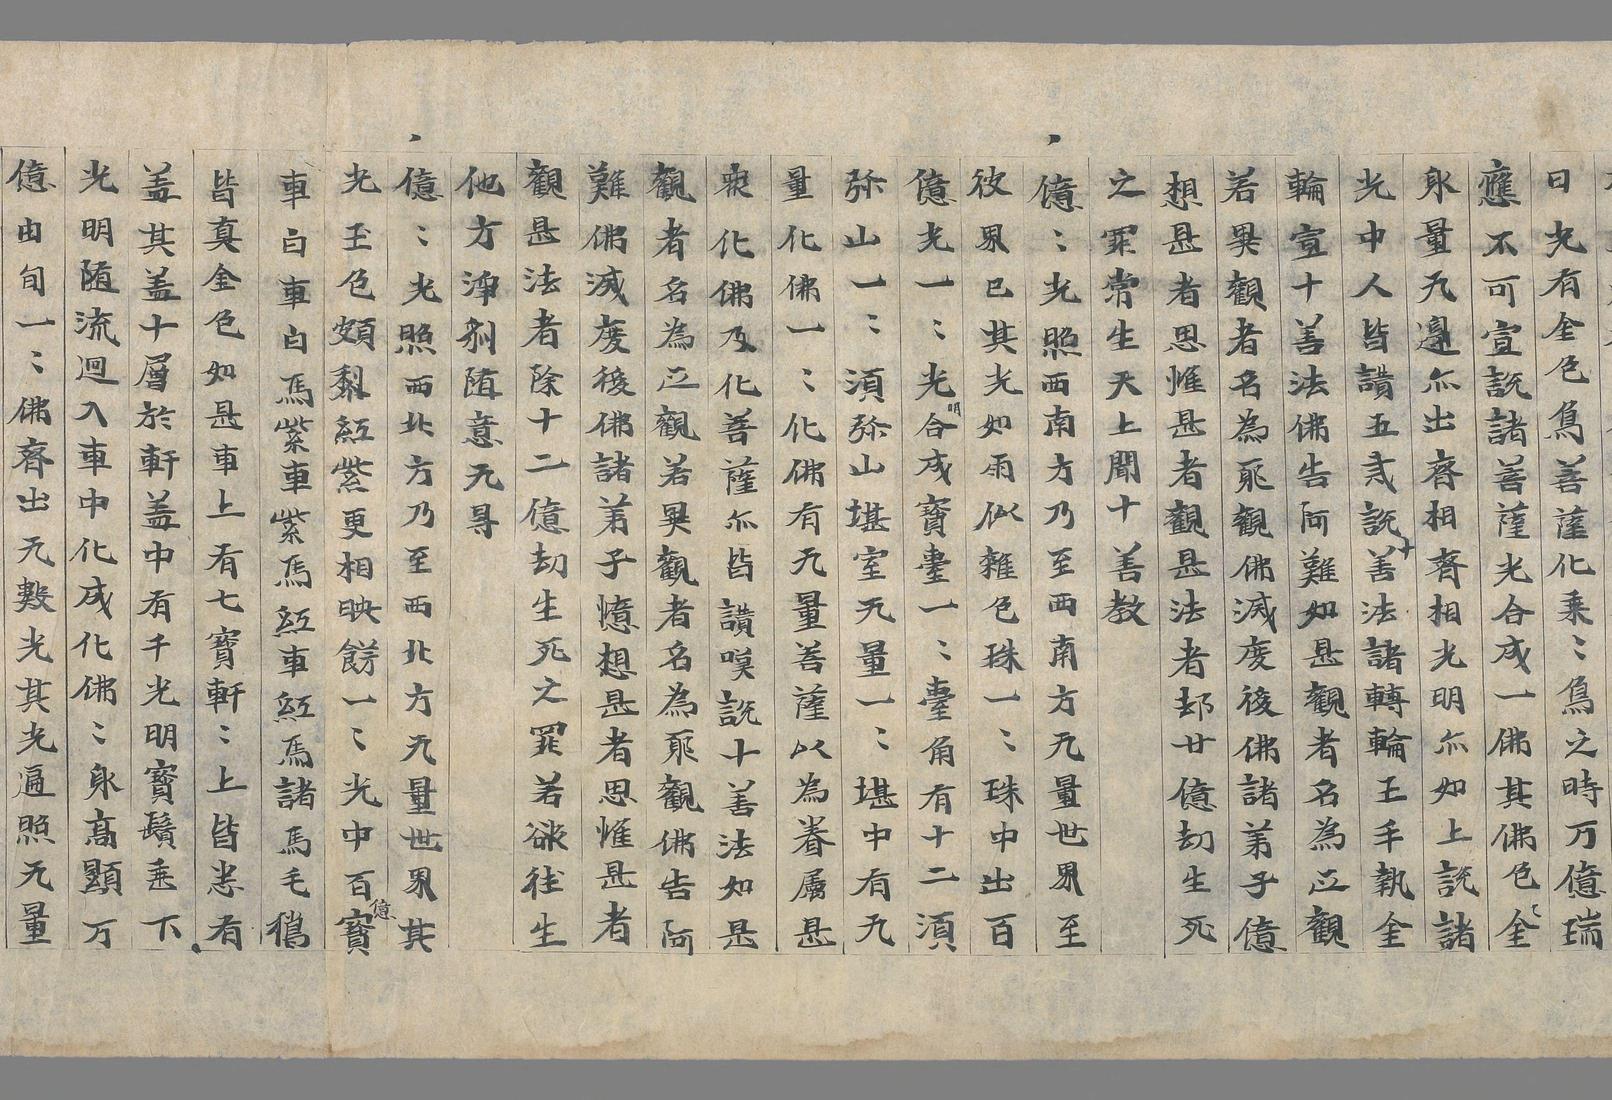 日光有金色鳥菩薩化乘〻鳥之時万億瑞
應不可宣說諸菩薩光合成一佛其佛色〻金
身量无邊亦出齊相齊相光明亦如上說諸
光中人皆讃五戒說十善法諸轉輪王手執金
輪宣十善法佛告阿難如是觀者名為正觀
若異觀者名為耶觀佛滅度後佛諸弟子億
想是者思惟是者觀是法者却廿億劫生死
之罪常生天上聞十善教
億〻光照西南方乃至西南方无量世界至
彼界已其光如雨似雜色珠一〻珠中出百
億光一〻光明合成寶臺一〻臺角有十二須
弥山一〻須弥山堪室无量一〻堪中有无
量化佛一〻化佛有无量菩薩以為眷屬是
衆化佛及化菩薩亦皆讃嘆說十善法如是
觀者名為正觀若異觀者名為耶觀佛告阿
難佛滅度後佛諸弟子憶想是者思惟是者
觀是法者除十二億劫生死之罪若欲往生
他方淨刹随意无㝵
億〻光照西北方乃至西北方无量世界其
光玉色頗梨紅紫更相映餝一〻光中百億寶
車白車白馬紫車紫馬紅車紅馬諸馬毛𩥭
皆真金色如是車上有七寶軒〻上皆悉有
盖其盖十層於軒盖中有千光明寶鬚垂下
光明随流迴入車中化成化佛〻身高顯万
億由旬一〻佛齊出无數光其光遍照无量